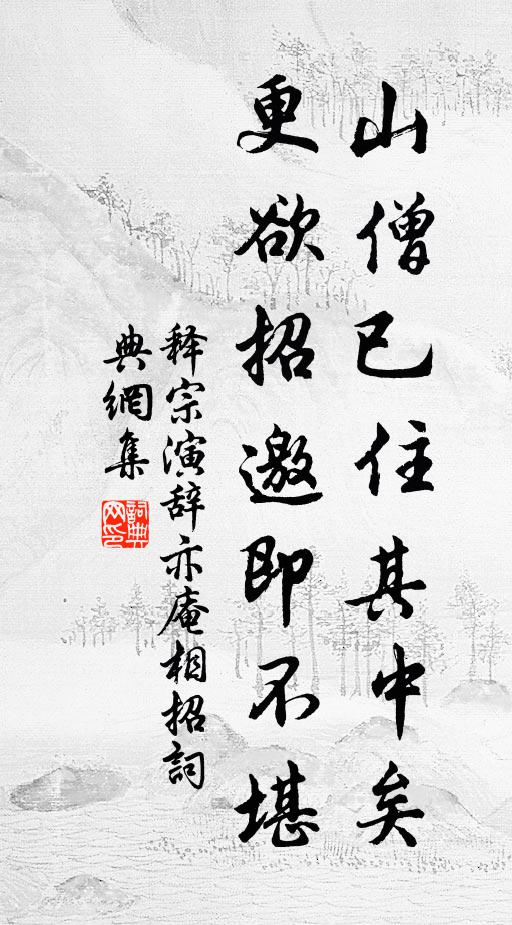 山僧已住其中矣
更欲招邀即不堪
释宗演辞亦庵相招詞
典網集
詞典网印